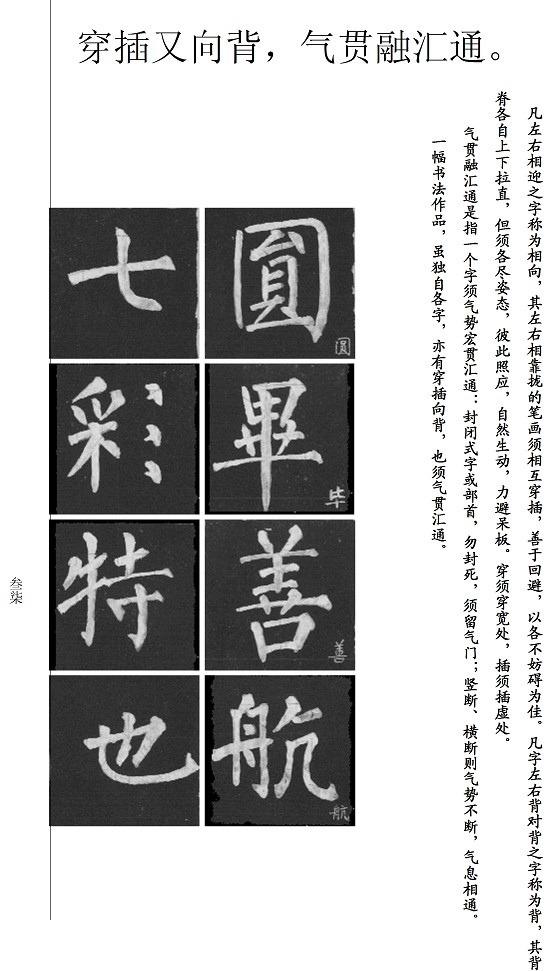 穿插又向背，气贯融汇通。
凡左右相迎之字称为相向，其左右相靠拢的笔画须相互穿插，善于回避，以各不妨碍为佳。凡字左右背对背之字称为背，其背
脊各自上下拉直，但须各尽姿态，彼此照应，自然生动，力避呆板。穿须穿宽处，插须插虚处。
气贯融汇通是指一个字须气势宏贯汇通：封闭式字或部首，勿封死，须留气门；竖断、横断则气势不断，气息相通。
一幅书法作品，虽独自各字，亦有穿插向背，也须气贯汇通。
圓
圆
畢
毕
善
善
航
航
七
彩
特
也
叁柒